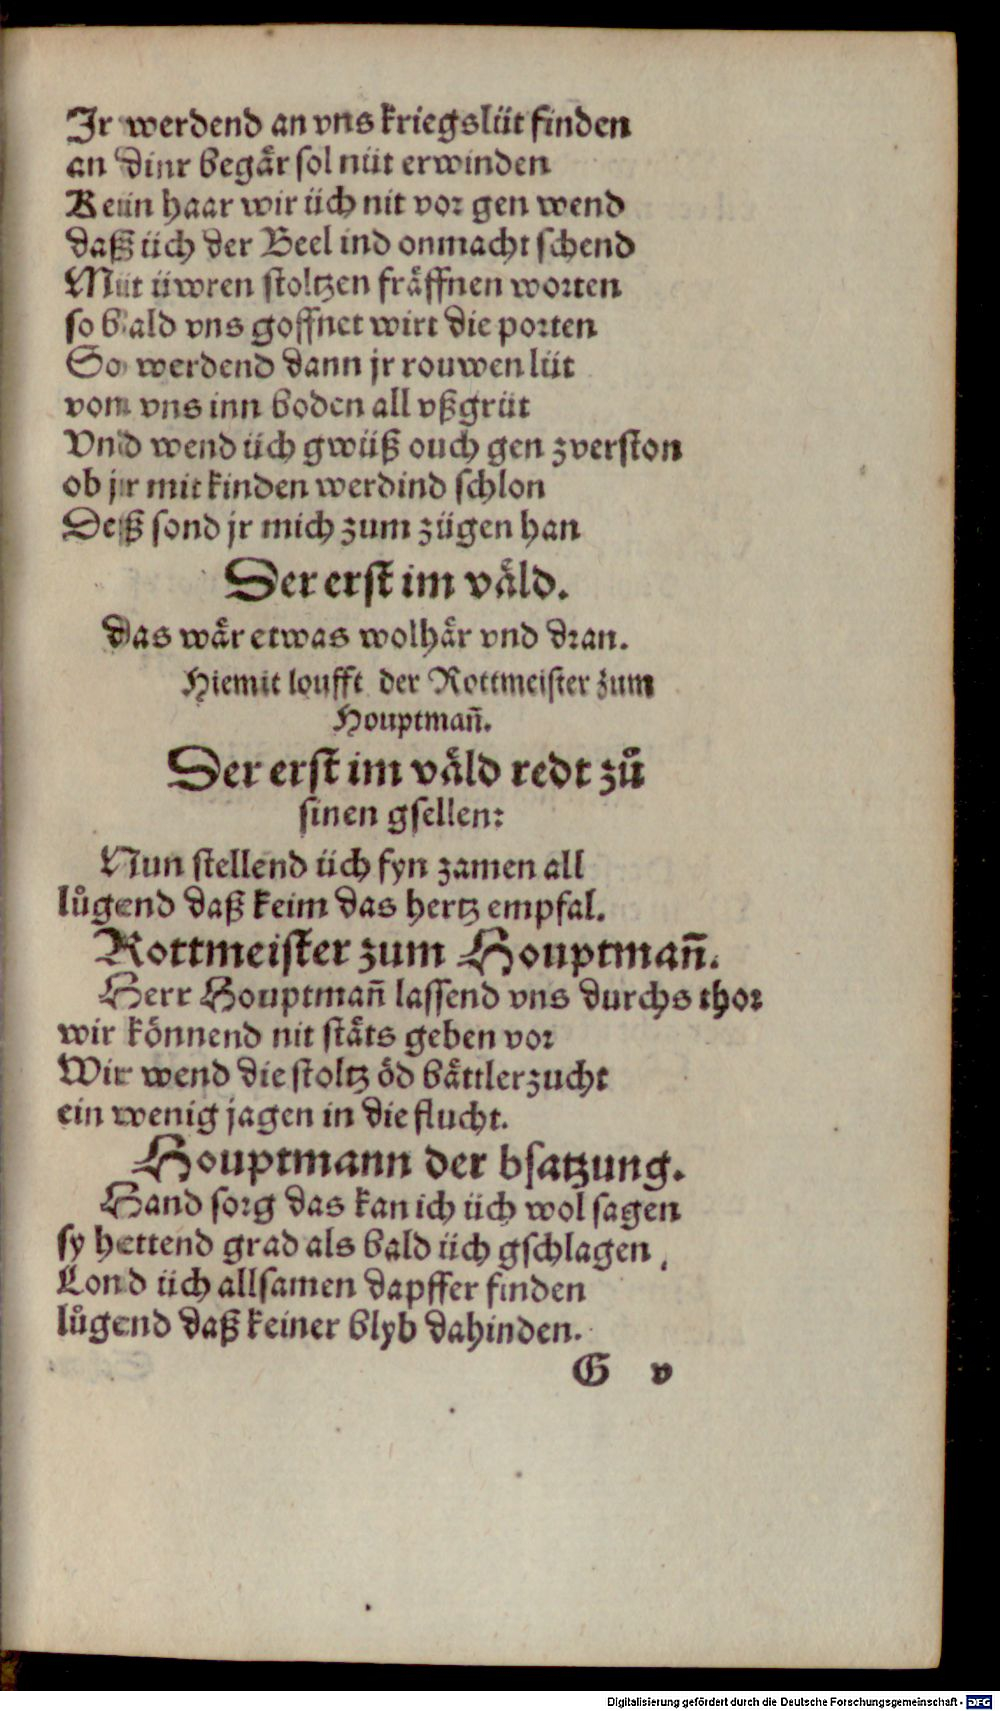 Jr werdend an vns kriegslüt finden
an dinr begär sol nüt erwinden
Kein haar wir üch nit vor gen wend
daß üch der Beel ind onmacht schend
Mit üwren stoltzen fräffnen worten
so bald vns goffnet wirt die porten
So werdend dann jr rouwen lüt
von vns inn boden all vßgrüt
Vnd wend üch gwüß ouch gen zverston
ob jr mit kinden werdind schlon
Deß sond jr mich zum zügen han
Der erst im väld.
das wär etwas wolhär vnd dran.
Hiemit loufft der Rottmeister zum
Houptmañ.
Der erst im väld redt zů
sinen gsellen:
Nun stellend üch fyn zamen all
lůgend daß keim das hertz empfal.
Rottmeister zum Houptmañ.
Herr Houptmañ lassend vns durchs thor
wir könnend nit stäts geben vor
Wir wend die stoltz öd bättlerzucht
ein wenig jagen in die flucht.
Houptmann der bsatzung.
Hand sorg das kan ich üch wol sagen
sy hettend grad als bald üch gschlagen,
Lond üch allsamen dapffer finden
lůgend daß keiner blyb dahinden.
G v
Digitalisierung gefördert durch die Deutsche Forschungsgemeinschaft - DFG